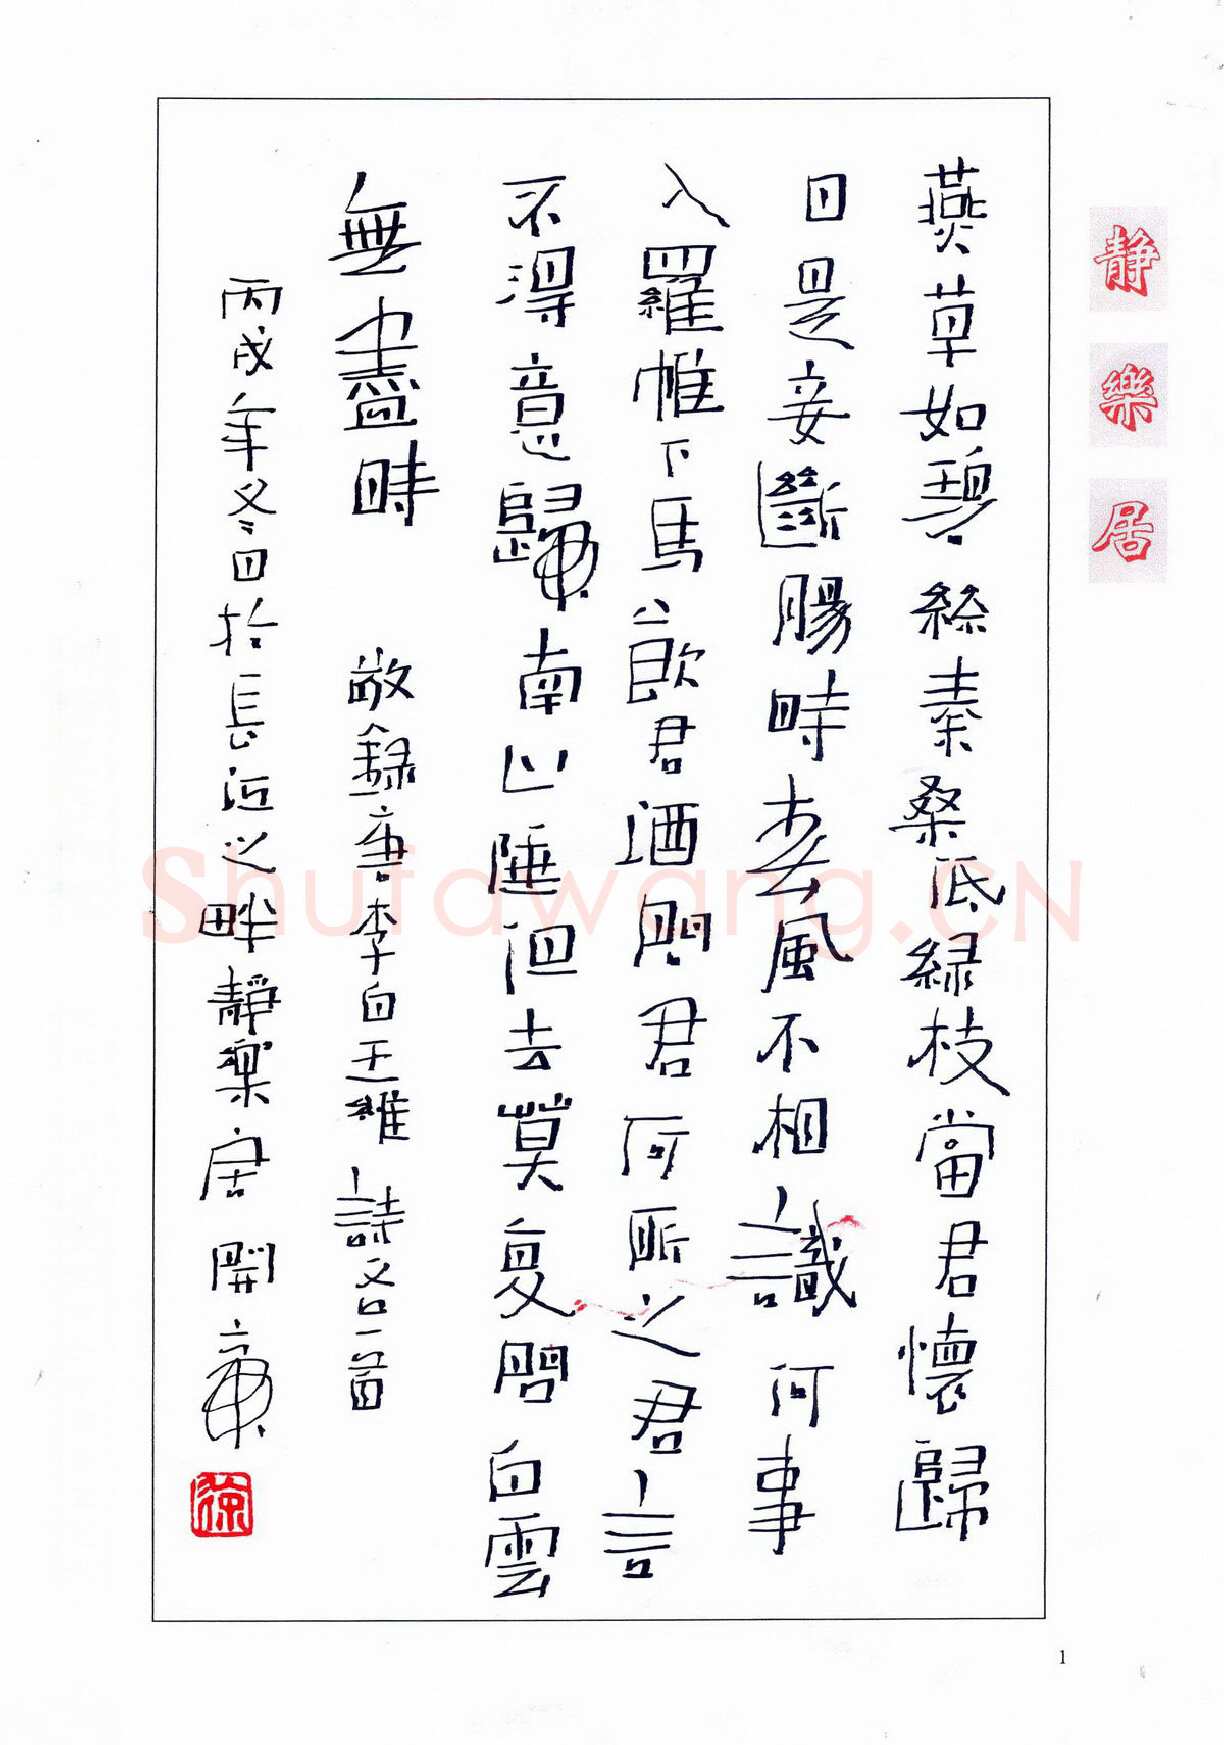 靜樂居
燕草如碧絲秦桑底緑枝當君懷歸
日是妾斷腸時春風不相識何事
入羅帷下馬飲君酒問君何所之君言
不得意歸南山陲但去莫复問白雲
無盡時
敬録唐李白王維詩各一首
丙戌年冬日於長江之畔靜樂居開康
Shufawang.CN
1